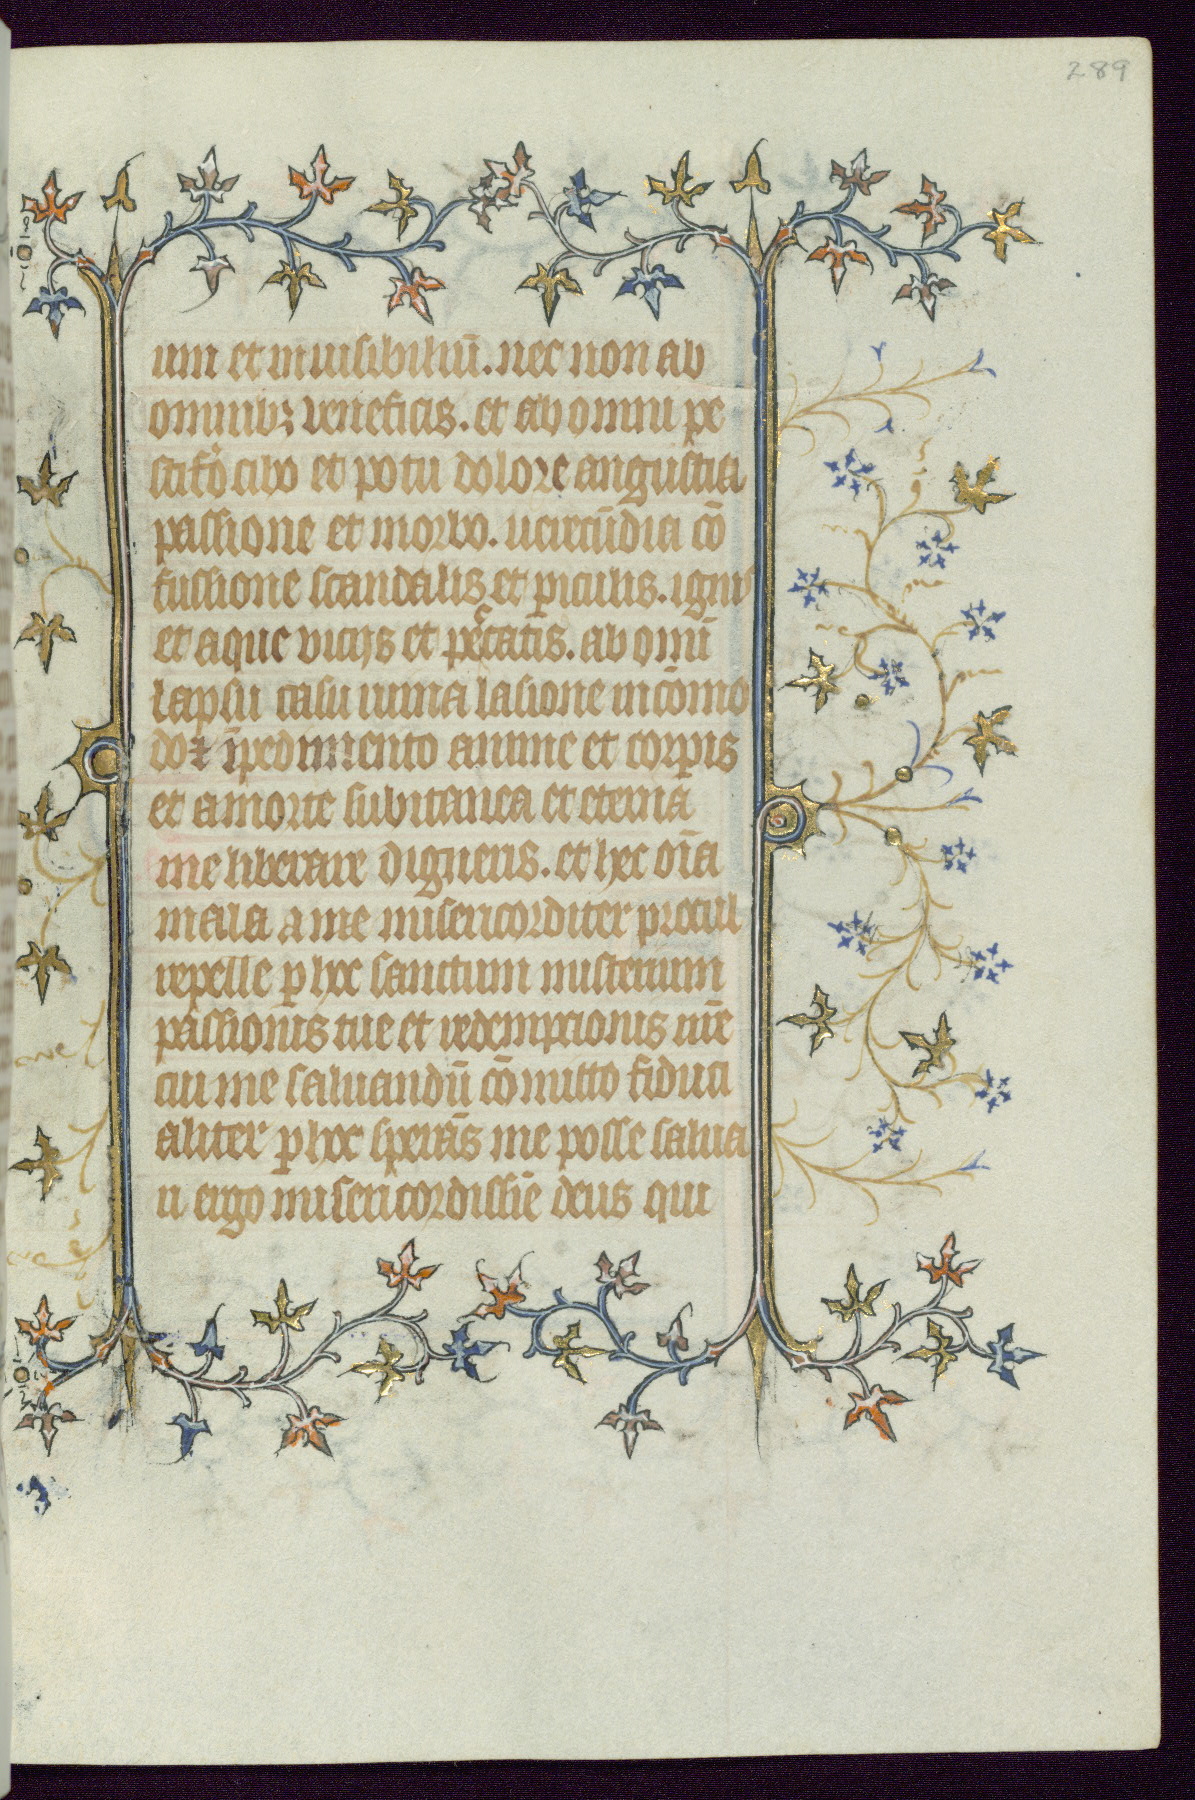 289
um et inuisibiliū. nec non ab
omnibꝫ veneficiis. et ab omni pe
stifo cibo et potu dolore angustia
passione et morbo. uerecūdia cō
fussione scandalis et ꝑiculis. ignis
et aque viciis et peccatis. ab omī
lapsu casu ruina lasione incōmo
do ⁊ īpedimento anime et corꝑis
et a morte subitanea et eterna
me liberare digneris. et hec oīa
mala a me misericorditer procul
repelle ꝑ hoc sanctum misterium
passionis tue et redempcionis nr̄e
cui me saluandū cōmitto fiduci
aliter ꝑ hoc sperās me posse salua
ri ergo misericordissīe deus qui